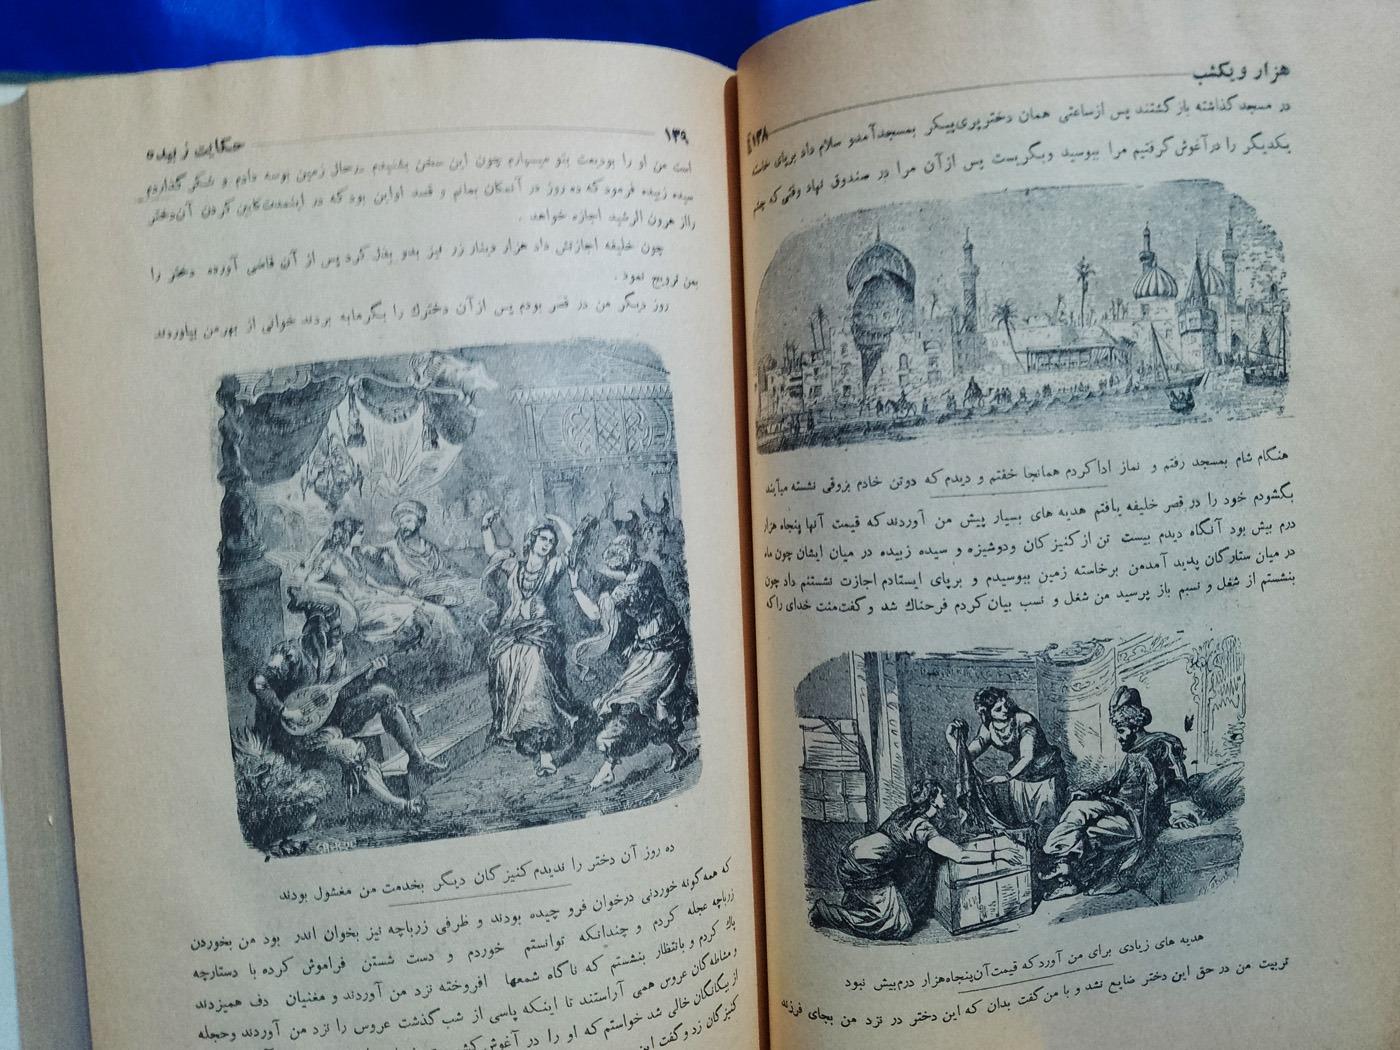 هزار و یکشب
۱۳۸
در مسجد گذاشته باز گشتند پس از ساعتی همان دختر پری پیکر بمسجد آمد و سلام داد بر پای خاسته
یکدیگر را در آغوش گرفتیم مرا ببوسید و بگریست پس از آن مرا در صندوق نهاد وقتی که چشم
هنگام شام بمسجد رفتم و نماز ادا کردم همانجا خفتم و دیدم که دوتن خادم بزوقی نشسته میآیند
بگشودم خود را در قصر خلیفه یافتم هدیه های بسیار پیش من آوردند که قیمت آنها پنجاه هزار
درم بیش بود آنگاه دیدم بیست تن از کنیز کان ودوشیزه و سیده زبیده در میان ایشان چون ماه
در میان ستارگان پدید آمد من برخاسته زمین ببوسیدم و بر پای ایستادم اجازت نشستنم داد چون
بنشستم از شغل و نسبم باز پرسید من شغل و نسب بیان کردم فرحناك شد و گفت منت خدای را که
هدیه های زیادی برای من آورد که قیمت آن پنجاه هزار درم بیش نبود
تربیت من در حق این دختر ضایع نشد و با من گفت بدان که این دختر در نزد من بجای فرزند
۱۳۹
حکایت زبیده
است من او را بودیعت بتو میسپارم چون این سخن بشنیدم درحال زمین بوسه دادم و شکر گذاردم
سیده زبیده فرمود که ده روز در آنمکان بمانم و قصد او این بود که در اینمدت کابین کردن آن دختر
را از هرون الرشید اجازه خواهد .
چون خلیفه اجازتش داد هزار دینار زر نیز بدو بذل کرد پس از آن قاضی آورده دختر را
بمن تزویج نمود .
روز دیگر من در قصر بودم پس از آن دخترك را بگرمابه بردند خوانی از بهر من بیاوردند
ده روز آن دختر را ندیدم کنیز کان دیگر بخدمت من مشغول بودند
که همه گونه خوردنی درخوان فرو چیده بودند و ظرفی زرباچه نیز بخوان اندر بود من بخوردن
زرباچه عجله کردم و چندانکه توانستم خوردم و دست شستن فراموش کرده با دستارچه
پاك کردم و بانتظار بنشستم که ناگاه شمعها افروخته نزد من آوردند و مغنیان دف همیزدند
و مشاطه گان عروس همی آراستند تا اینکه پاسی از شب گذشت عروس را نزد من آوردند وحجله
از بیگانگان خالی شد خواستم که او را در آغوش
کنیز کان زد و گفت این